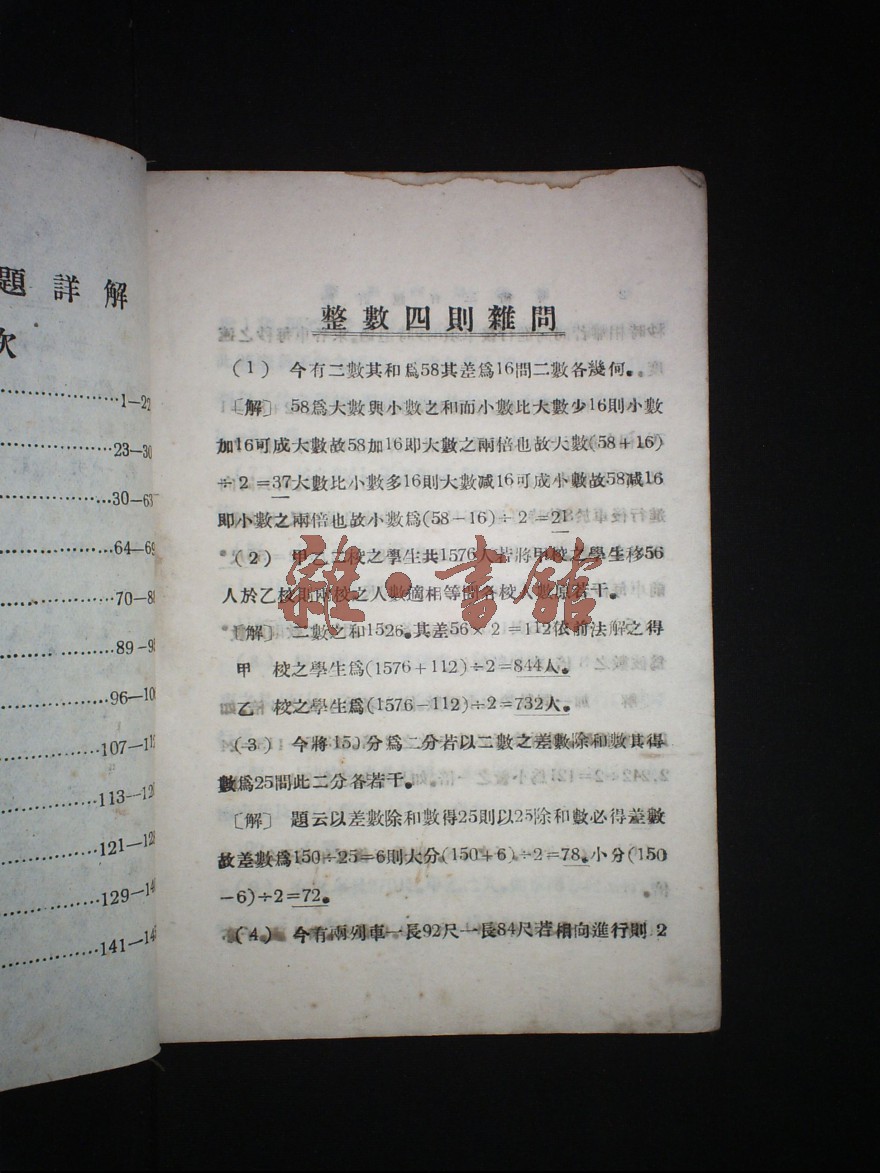 題詳解
次
1—22
23—30
30—63
64—69
70—8
89—9
96—10
107—11
113—12
121—12
129—14
141—14
整數四則雜問
(1) 今有二數其和爲58其差爲16問二數各幾何。
〔解〕 58爲大數與小數之和而小數比大數少16則小數
加16可成大數故58加16即大數之兩倍也故大數(58+16)
÷2=37大數比小數多16則大數减16可成小數故58减16
即小數之兩倍也故小數爲(58-16)÷2=21
(2) 甲乙二校之學生共1576人若將甲校之學生移56
人於乙校則兩校之人數適相等問各校人數原若干。
〔解〕 二數之和1526。其差56×2=112依前法解之得
甲 校之學生爲(1576+112)÷2=844人。
乙 校之學生爲(1576-112)÷2=732人。
(3) 今將150分爲二分若以二數之差數除和數其得
數爲25問此二分各若干。
〔解〕 題云以差數除和數得25則以25除和數必得差數
故差數爲150÷25=6則大分(150+6)÷2=78。小分(150
-6)÷2=72。
(4) 今有兩列車一長92尺一長84尺若相向進行則2
雜·書館